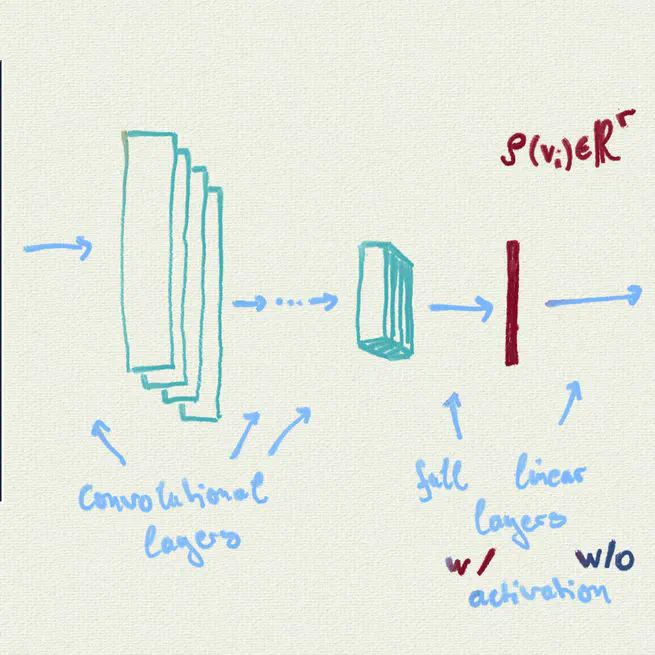 ρ(vᵢ)∈ℝʳ
...
Convolutional
layers
full linear
layers
w/ w/o
activation